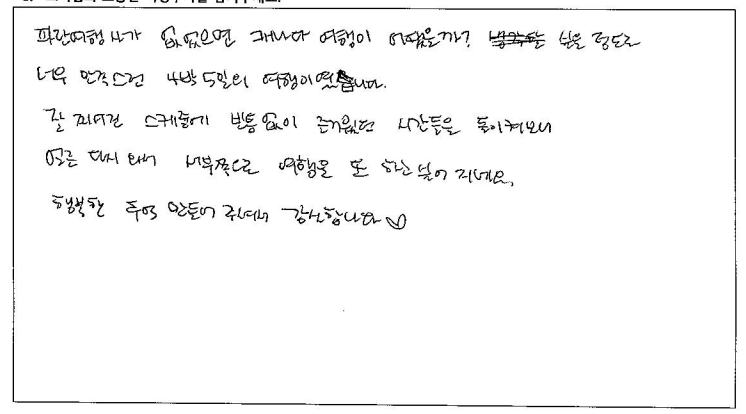 파란여행사가 없었으면 캐나다 여행이 어땠을까? 싶을 정도로
너무 만족스런 4박 5일의 여행이였습니다.
잘 짜여진 스케줄에 빈틈없이 즐거웠던 시간들을 돌이켜보니
얼른 다시 와서 서부쪽으로 여행을 또 하고 싶어 지네요.
행복한 추억 만들어 주셔서 감사합니다 ♡